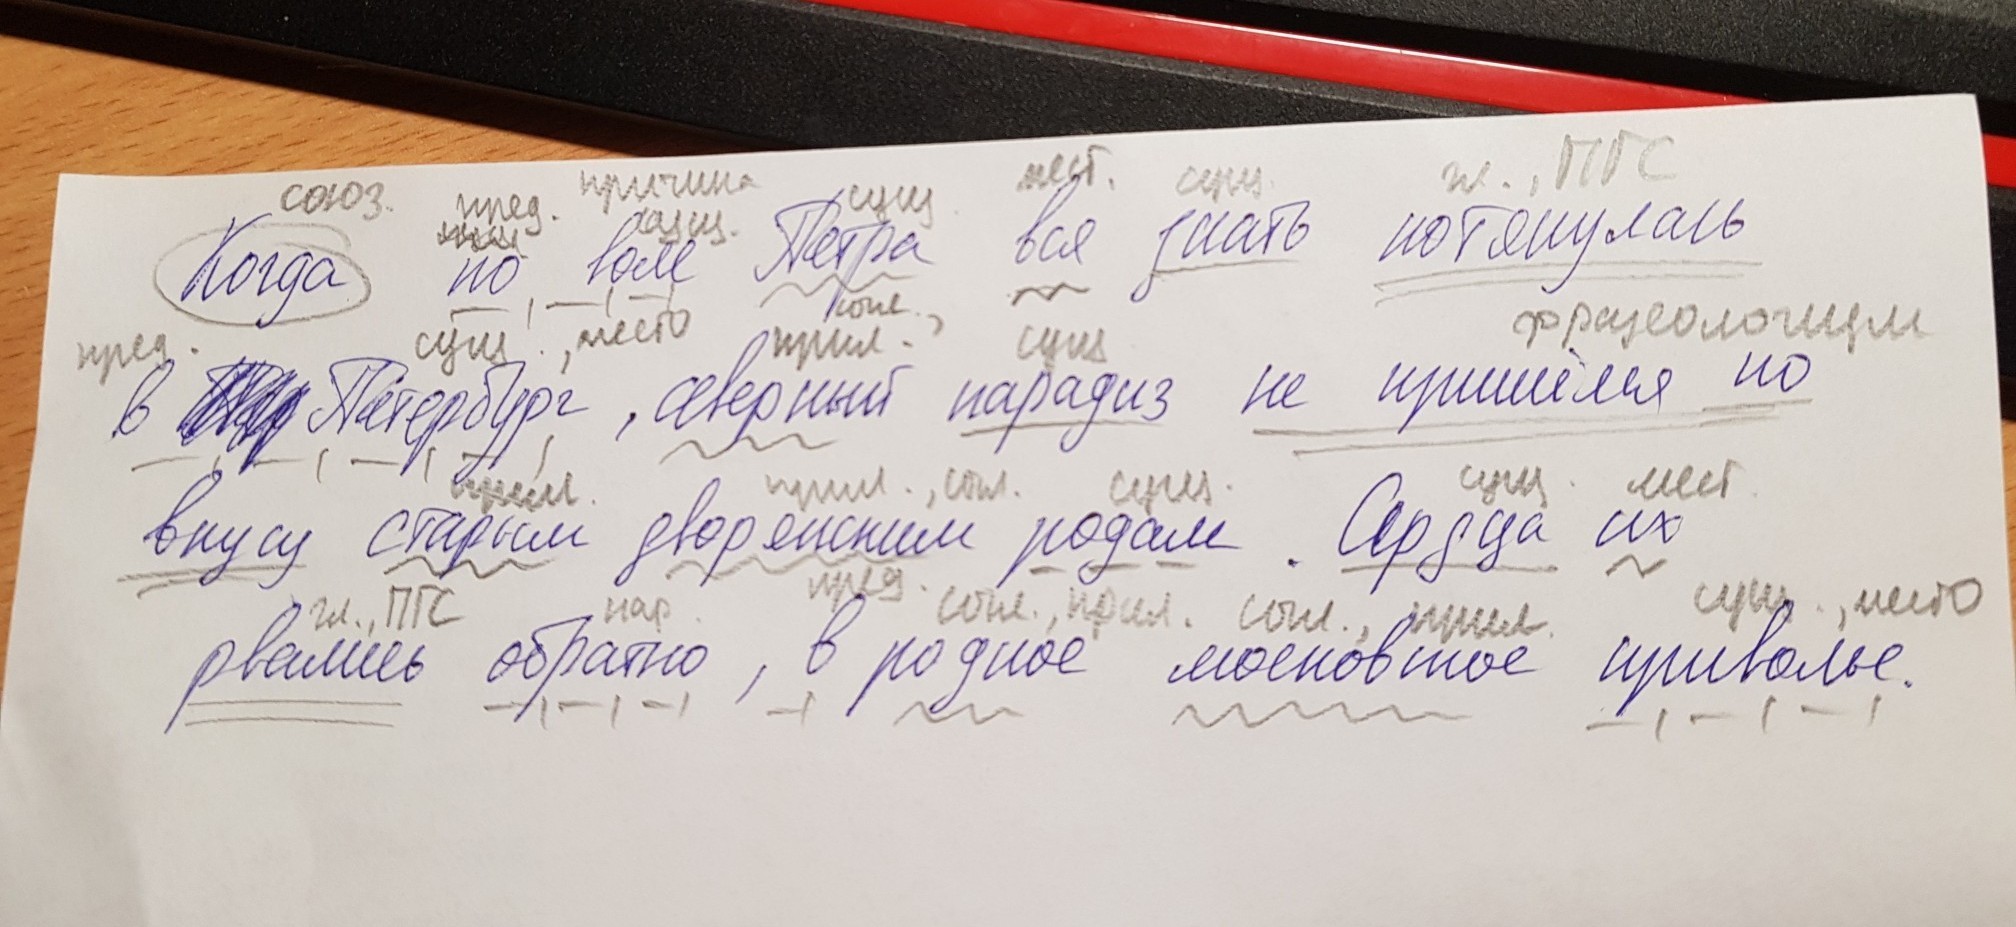 союз. пред. причина сущ. мест. сущ. гл., ПГС
сущ.
Когда по воле Петра вся знать потянулась
пред. сущ., место согл., прил. сущ фразеологизм
в Петербург, северный парадиз не пришёлся по
прил. прил., согл. сущ. сущ. мест.
вкусу старым дворянским родам. Сердца их
гл., ПГС нар. пред. согл., прил. согл., прил. сущ., место
рвались обратно, в родное московское приволье.